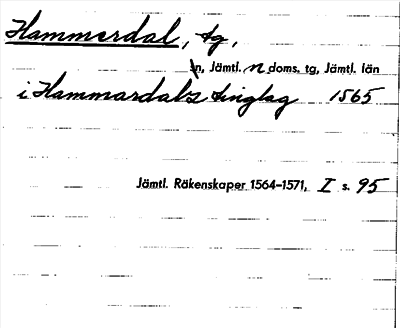 Hammerdal, tg,
n, Jämtl. n doms. tg, Jämtl. län
i Hammardals tinglag 1565
Jämtl. Räkenskaper 1564–1571, I s. 95